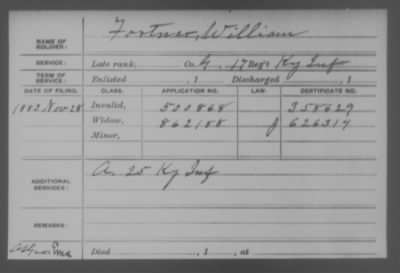 NAME OF SOLDIER: Fortner, William
SERVICE: Late rank, Co. G, 17 Reg't Ky Inf
TERM OF SERVICE: Enlisted , 1 Discharged , 1
DATE OF FILING. CLASS. APPLICATION NO. LAW. CERTIFICATE NO.
1883 Nov 28 Invalid, 500868 358629
Widow, 862188 626314
Minor,
ADDITIONAL SERVICES: A. 25 Ky Inf
REMARKS:
Died , 1 , at